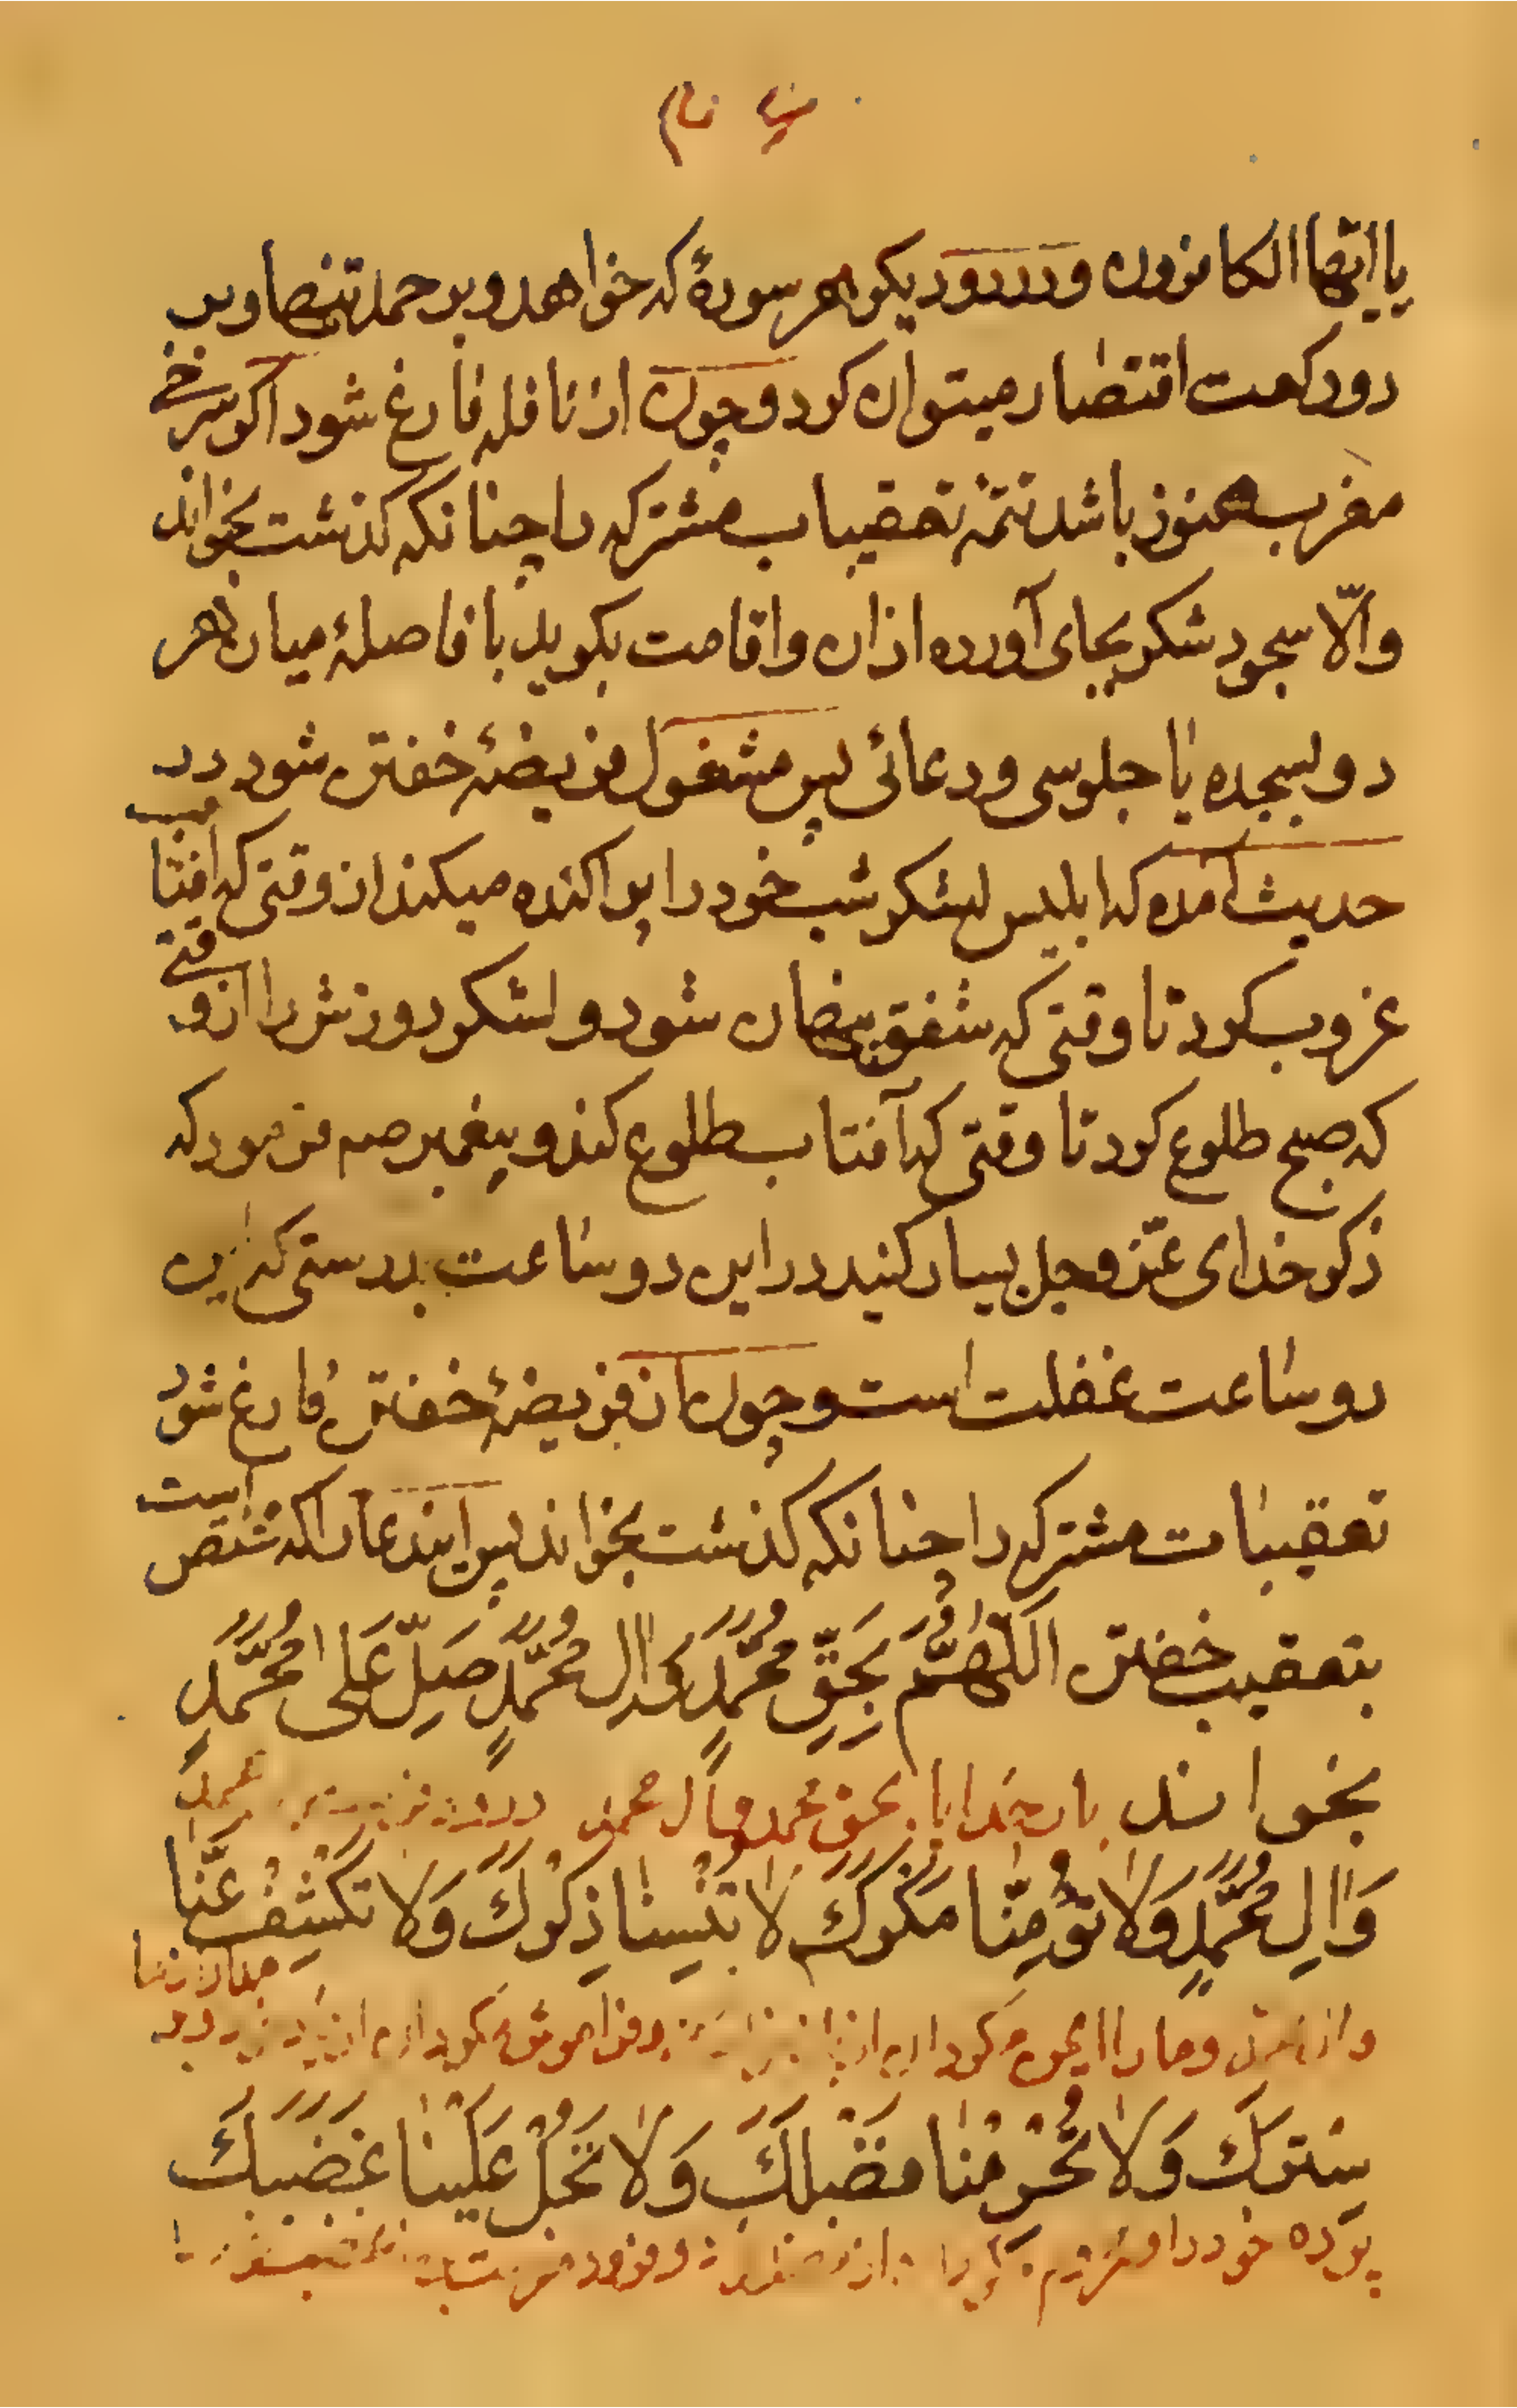 یا ایها الکافرون و در دو دیکر هر سورهٔ که خواهد و بر حمد تنها و بر
دو رکعت اقتصار میتوان کرد و چون از نافله فارغ شود اکر سرخی
مغرب هنوز باشد تتمهٔ تعقیبات مشترکه را چنانکه کذشت بخواند
والّا سجود شکر بجای آورده اذان و اقامت بکوید با فاصلهٔ میان هر
دو بسجده یا جلوسی و دعائی پس مشغول فریضهٔ خفتن شود در
حدیث آمده که ابلیس لشکر شب خود را پراکنده میکند از وقتی که افتاب
غروب کرد تا وقتی که شفق پنهان شود و لشکر روزش را از وقتی
که صبح طلوع کرد تا وقتی که آفتاب طلوع کند و پیغمبر صم فرمود که
ذکر خدای عزّ و جل بسیار کنید در این دو ساعت بدرستی که این
دو ساعت غفلت است و چون از فریضهٔ خفتن فارغ شود
تعقیبات مشترکه را چنانکه کذشت بخواند پس ایندعا را که مختص است
بتعقیب خفتن اَللّٰهُمَّ بِحَقِّ مُحَمَّدٍ وَ اٰلِ مُحَمَّدٍ صَلِّ عَلٰی مُحَمَّدٍ
بخواند بار خدایا بحق محمد و آل محمد محمد
وَ اٰلِ مُحَمَّدٍ وَلا تُؤْمِنّا مَکْرَکَ لا تُنْسِنا ذِکْرَکَ وَلا تَکْشِفْ عَنّا
و ما را ایمن مکردان از
سِتْرَکَ وَلا تَحْرِمْنا فَضْلَکَ وَلا تُحِلَّ عَلَیْنا غَضَبَکَ
پرده خود را و